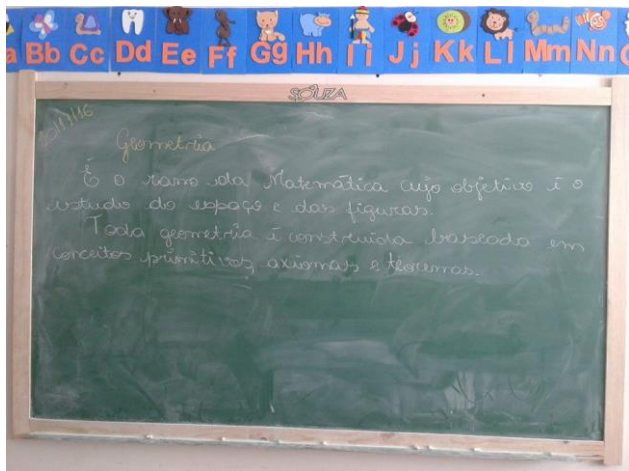 a Bb Cc Dd Ee Ff Gg Hh Ii Jj Kk Ll Mm Nn
SOUZA
Geometria
É o ramo da Matemática cujo objetivo é o
estudo do espaço e das figuras.
Toda geometria é construída baseada em
conceitos primitivos, axiomas e teoremas.